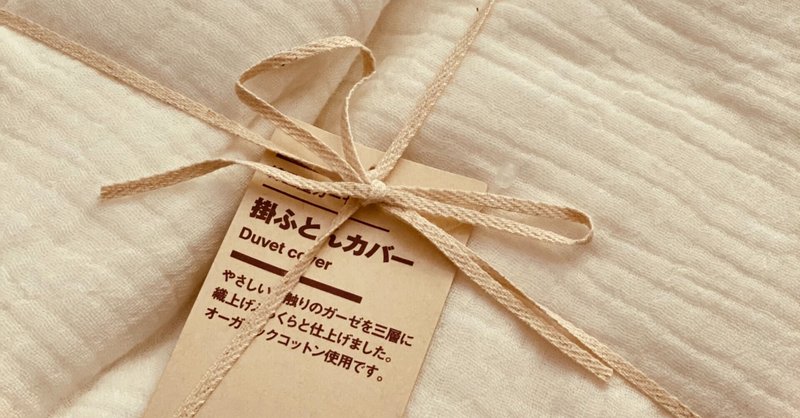 掛ふとんカバー
Duvet cover
やさしい肌触りのガーゼを三層に
織上げふっくらと仕上げました。
オーガニックコットン使用です。